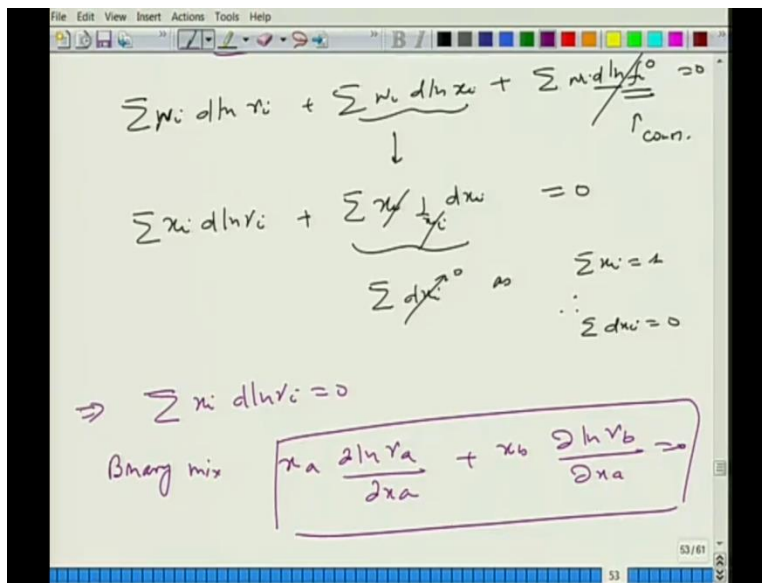 File Edit View Insert Actions Tools Help
B I
∑ ni d ln γi + ∑ ni d ln xi + ∑ ni d ln fi° = 0
↑ const.
↓
∑ xi d ln γi + ∑ xi 1/xi dxi = 0
∑ dxi → 0 as ∑ xi = 1
∴ ∑ dxi = 0
⇒ ∑ xi d ln γi = 0
Binary mix xa ∂ ln γa / ∂xa + xb ∂ ln γb / ∂xa = 0
53/61
53